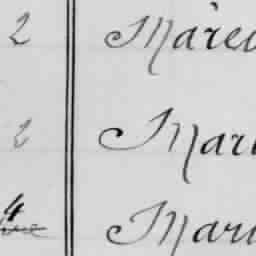 2 Marec
2 Mari
4 Mari